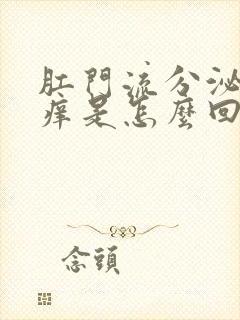 肛門流分泌
痒是怎麼回
念頭